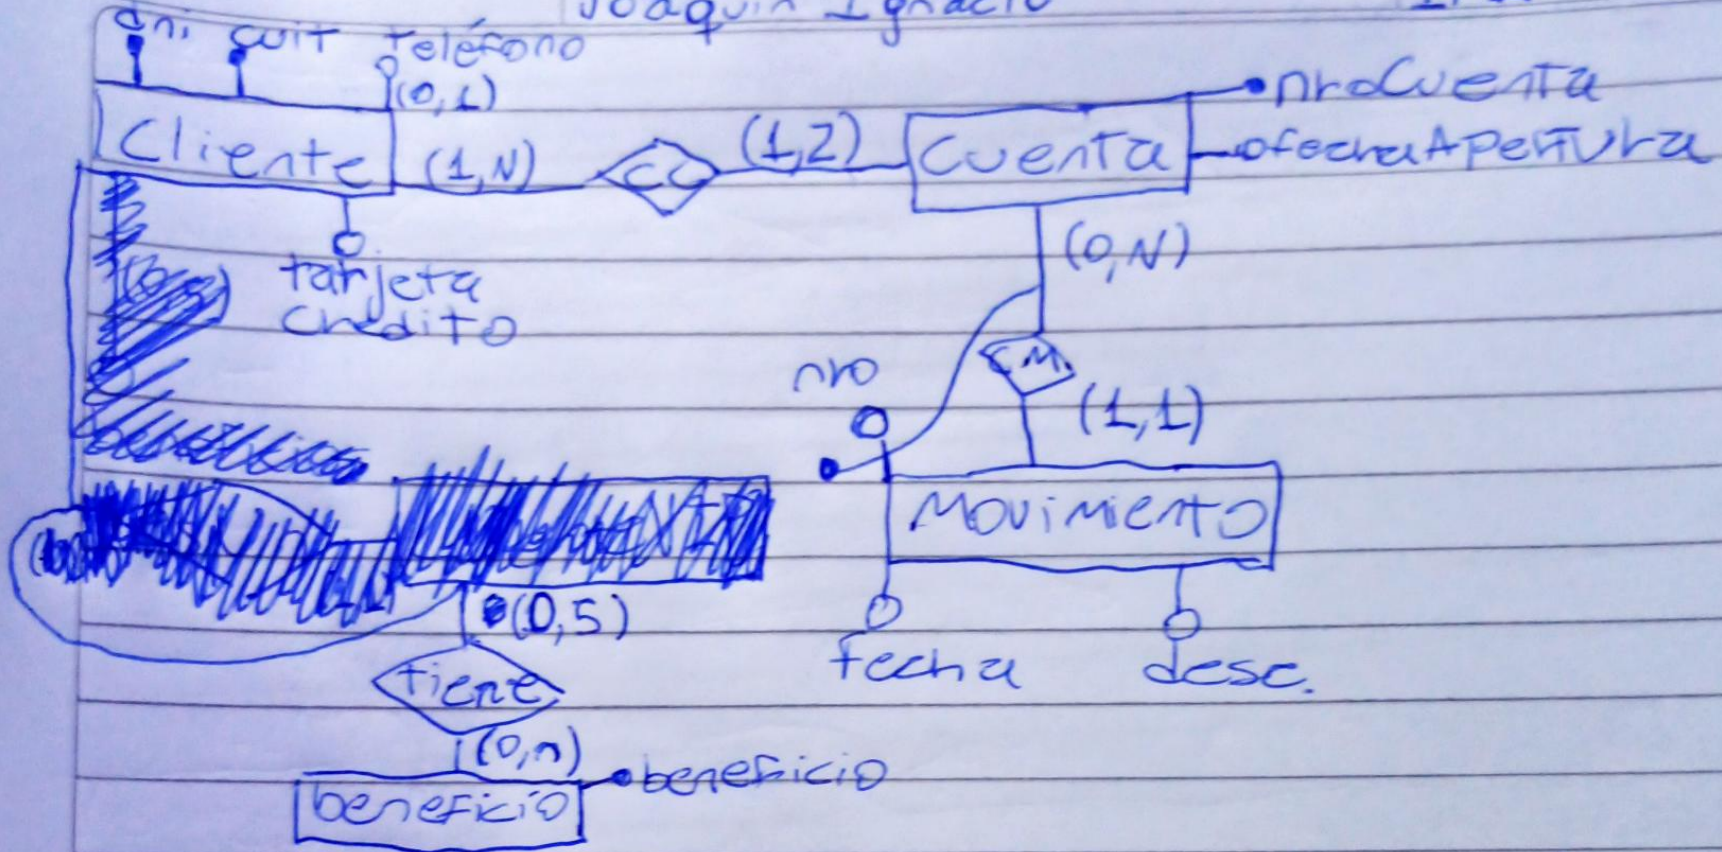 Joaquín Ignacio
dni cuit teléfono
(0,1)
Cliente (1,N) CC (1,2) Cuenta
nroCuenta
fechaApertura
tarjeta
credito
(0,N)
CM
(1,1)
nro
Movimiento
fecha desc.
(0,5)
tiene
(0,n)
beneficio
beneficio